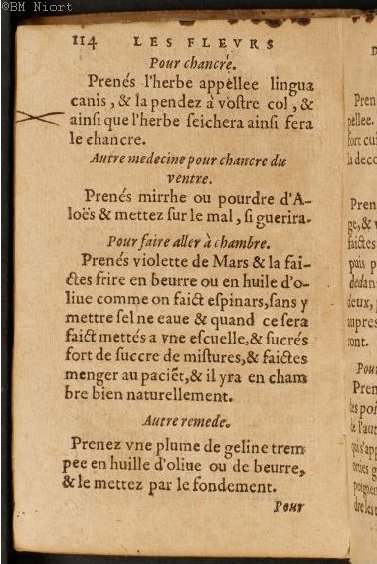 ©BM Niort
114 LES FLEVRS
Pour chancre.
Prenés l'herbe appellee lingua
canis, & la pendez à vostre col, &
ainsi que l'herbe seichera ainsi fera
le chancre.
Autre medecine pour chancre du
ventre.
Prenés mirrhe ou pourdre d'A-
loës & mettez sur le mal, si guerira.
Pour faire aller à chambre.
Prenés violette de Mars & la fai-
ctes frire en beurre ou en huile d'o-
liue comme on faict espinars, sans y
mettre sel ne eaue & quand ce sera
faict mettés a vne escuelle, & sucrés
fort de succre de mistures, & faictes
menger au paciẽt, & il yra en cham
bre bien naturellement.
Autre remede.
Prenez vne plume de geline trem
pee en huille d'oliue ou de beurre,
& le mettez par le fondement.
Pour
D
Pren
pellee.
fort cui
la deco
Pren
ge, & v
faictes
puis p
dedan
deux,
aupres
ront.
Pour
Pren
les poi
le l'aut
qui s'app
orties g
poignen
dre les